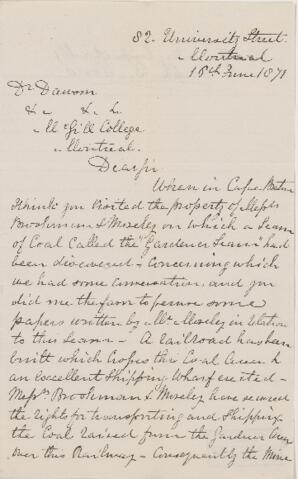 82. University Street
Montreal
15th June 1871
Dr Dawson
&c &c
McGill College
Montreal.
Dear Sir
When in Cape Breton
I think you visited the property of Messrs
Brookman & Moseley on which a Seam
of Coal called the "Gardener Seam" had
been discovered - concerning which
we had some conversation, and you
did me the favor to peruse some
papers written by Mr Moseley in relation
to this Seam - A railroad has been
built which crosses this Coal Area &
an excellent Shipping Wharf erected -
Messrs Brookman & Moseley have secured
the rights for transporting and Shipping
the Coal raised from the Gardner Area
over this Railway - Consequently the Mine